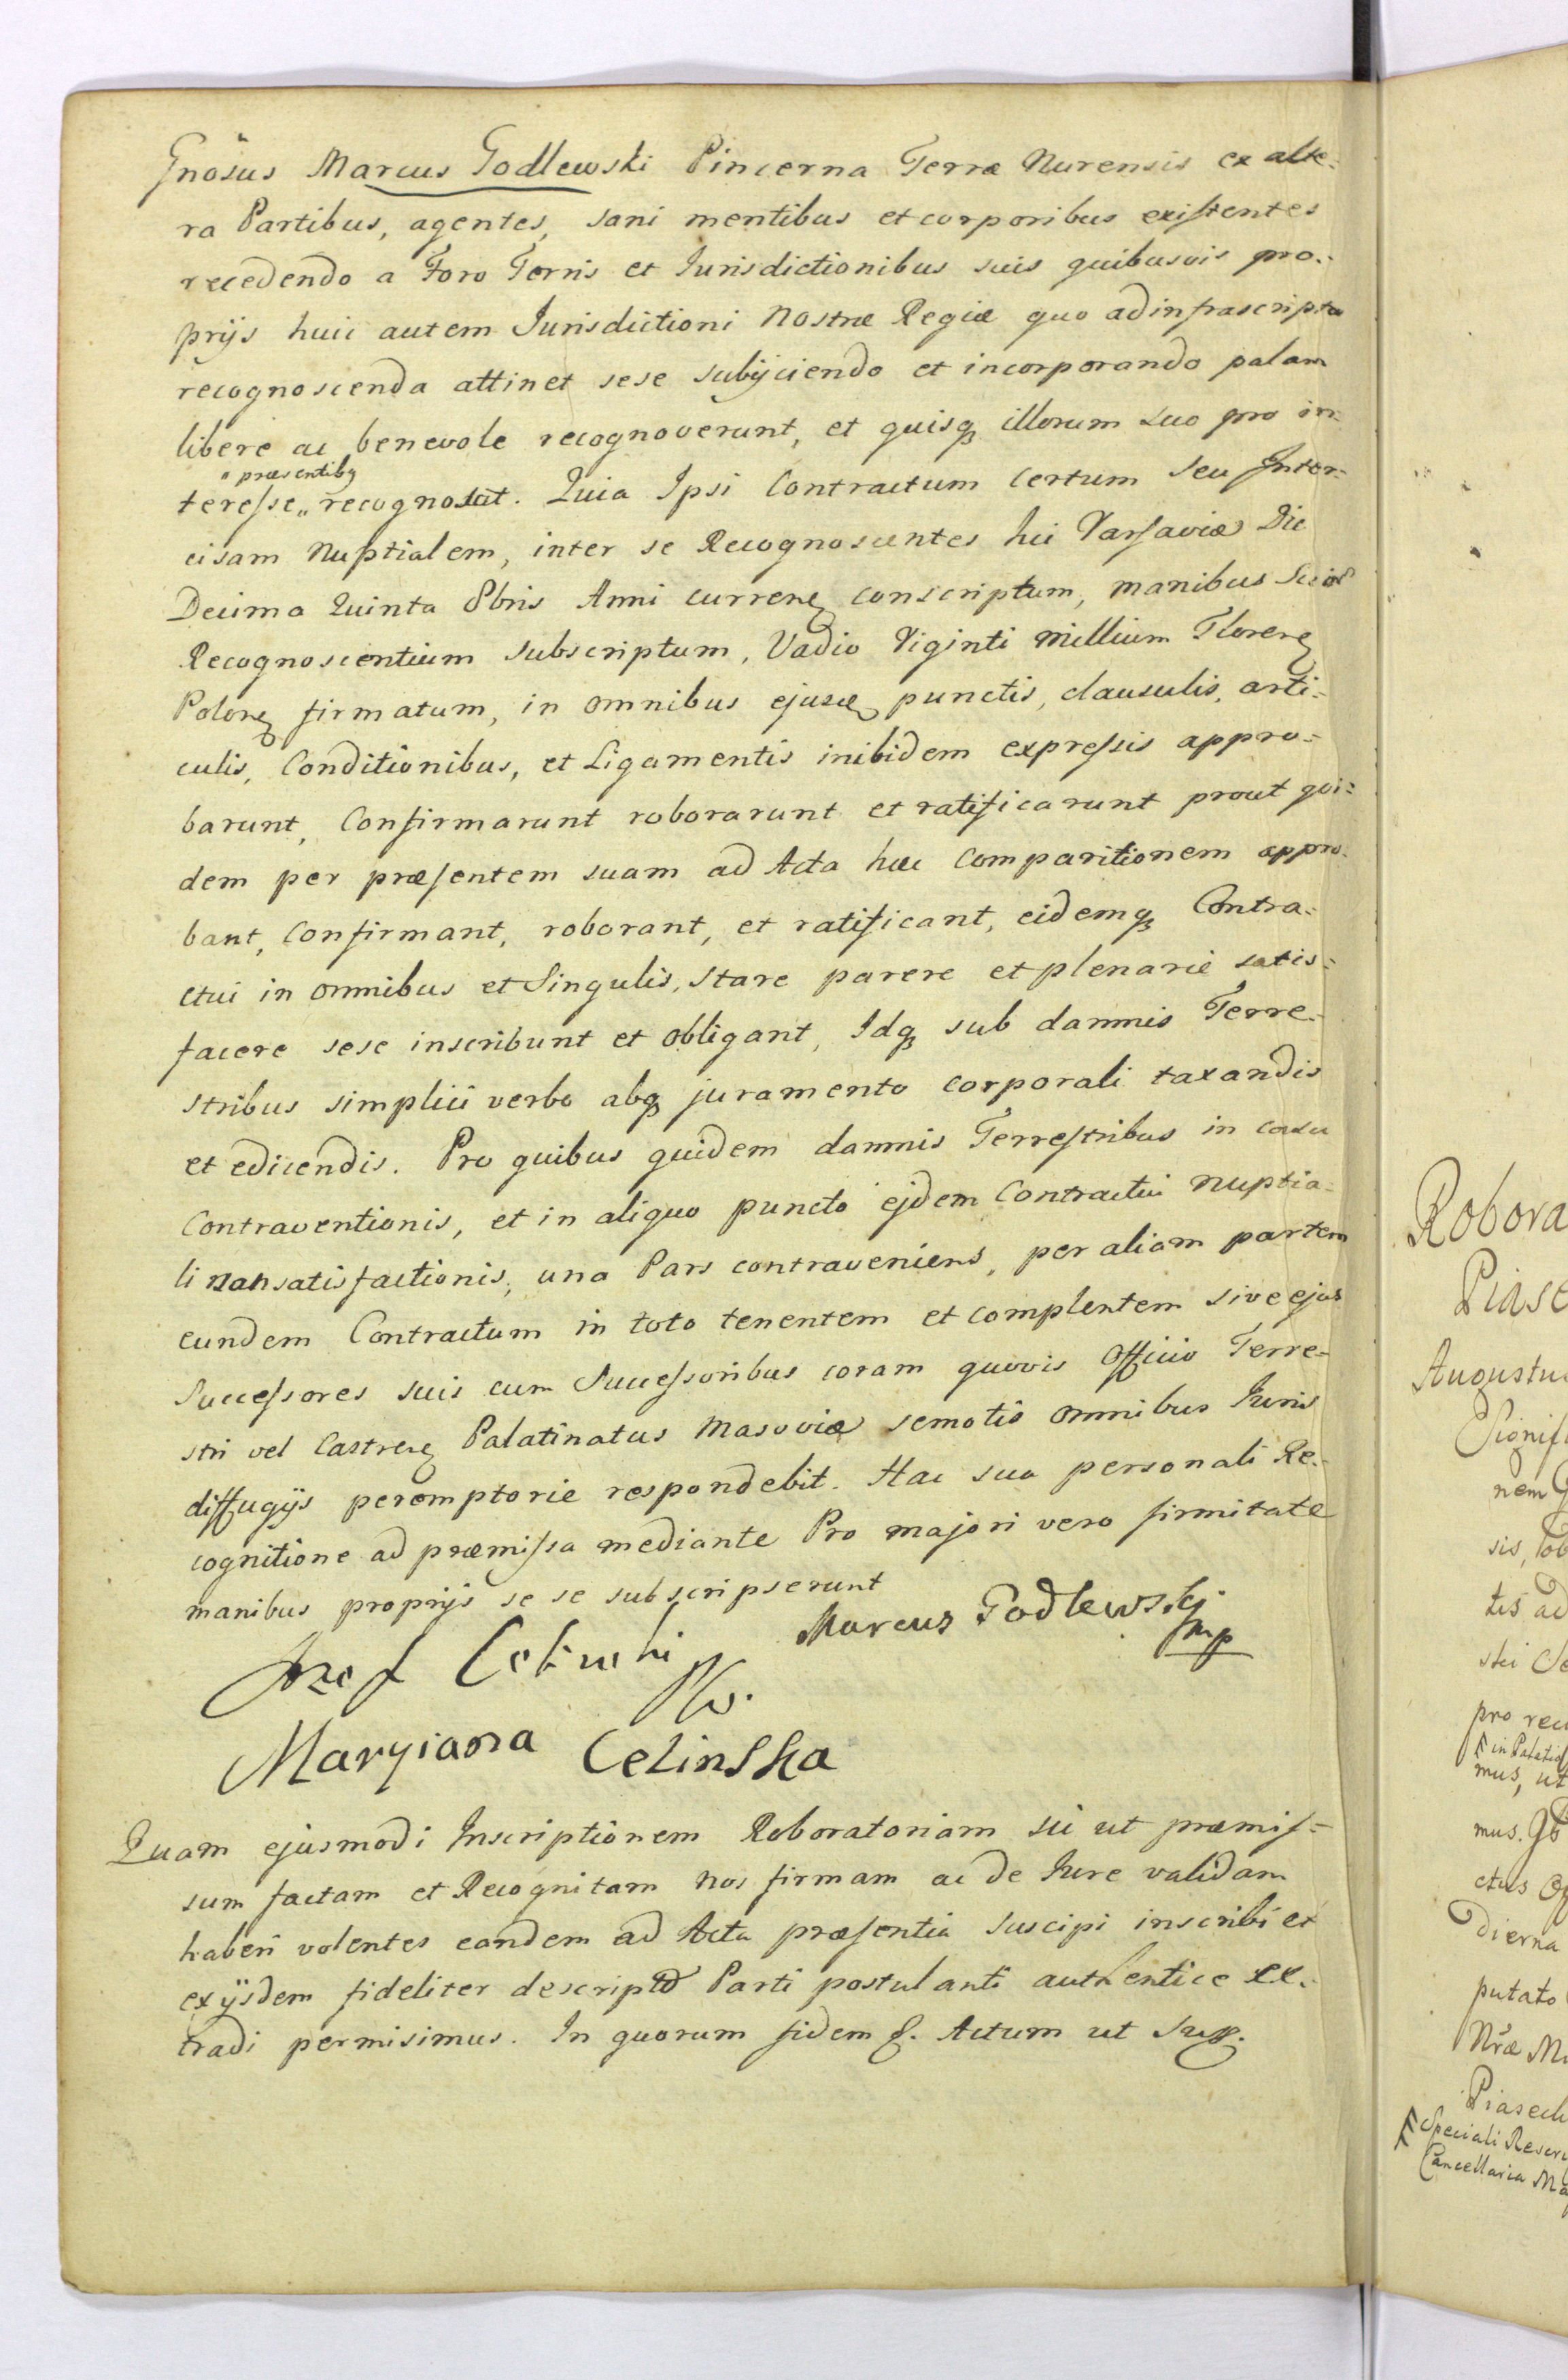 Gnosus Marcus Godlewski Pincerna Terræ Nurensis ex alte=
ra Partibus, agentes, sani mentibus et corporibus existentes
recedendo a Foro Terris et Jurisdictionibus suis quibusvis pro=
prijs huic autem Jurisdictioni Nostræ Regiæ quo ad infrascripta
recognoscenda attinet sese subijciendo et incorporando palam
libere ac benevole recognoverunt, et quisq illorum suo pro in=
" præsentibq
teresse,, recognoscit. Quia Ipsi Contractum Certum Seu Inter=
cisam Nuptialem, inter se Recognoscentes hic Varsaviæ Die
Decima Quinta 8bris Anni curren conscriptum, manibus Suior
Recognoscentium subscriptum, Vadio Viginti Millium Floren
Polon firmatum, in omnibus ejusd punctis, clausulis, arti=
culis, Conditionibus, et Ligamentis inibidem expressis appro=
barunt, Confirmarunt roborarunt et ratificarunt prout qui=
dem per præsentem suam ad Acta hæc Comparitionem appro=
bant, confirmant, roborant, et ratificant, eidemq Contra=
ctui in omnibus et Singulis, Stare parere et plenarie satis=
facere sese inscribunt et obligant, Idq sub damnis Terre=
stribus simplici verbo absq juramento corporali taxandis
et edicendis. Pro quibus quidem damnis Terrestribus in casu
Contraventionis, et in aliquo puncto ejdem Contractui nuptia=
li nonsatisfactionis, una Pars contraveniens, per aliam partem
eundem Contractum in toto tenentem et complentem sive ejus
Successores suis cum Successoribus coram quovis Officio Terre=
stri vel Castren Palatinatus Masoviæ semotis omnibus Juris
diffugijs peremptorie respondebit. Hac sua personali Re=
cognitione ad præmissa mediante Pro majori vero firmitate
manibus proprijs se se subscripserunt
Marcus Godlewskj
mp
Jozef Celinski
Maryianna Celinska
Quam ejusmodi Inscriptionem Roboratoriam sic ut præmis=
sum factam et Recognitam nos firmam ac de Jure validam
haberi volentes eandem ad Acta præsentia suscipi inscribi et
ex ijsdem fideliter descriptd Parti postulanti authentice ex=
tradi permisimus. In quorum fidem &. Actum ut Sup.
Robora
Piase
Augustus
Signif
nem G
sis, tob
tis ad
ski
pro rec
in Palatio
mus, ut
mus. Gb
ctus
dierna
putato
Nræ M
Piaseck
Speciali Rescri
Cancellaria Ma